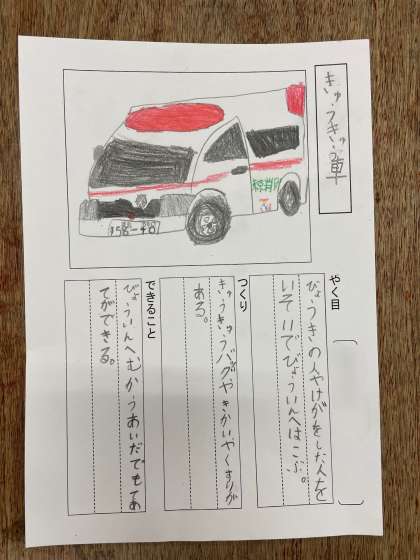 きゅうきゅう車
やく目
びょうきの人やけがをした人を
いそいでびょういんへはこぶ。
つくり
きゅうきゅうバグやきかいやくすりが
ある。
できること
びょういんへむかうあいだでもてあ
てができる。